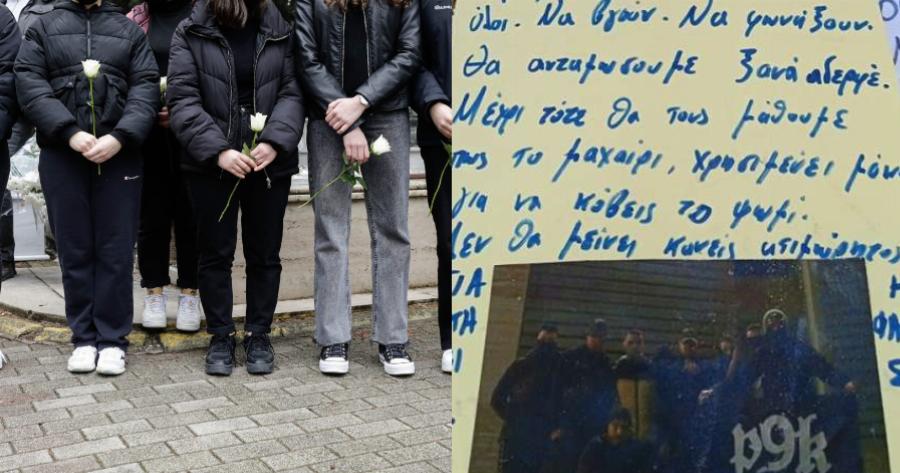 όλοι. Να βγουν. Να φωνάξουν.
Θα ανταμωσουμε ξανά αδερφέ.
Μέχρι τότε θα τους μάθουμε
πως το μαχαίρι, χρησιμεύει μόν
για να κόβεις το ψωμί.
Δεν θα μείνει κανείς ατιμώρητος
ΙΑ
ΤΗ
p9k
Champion